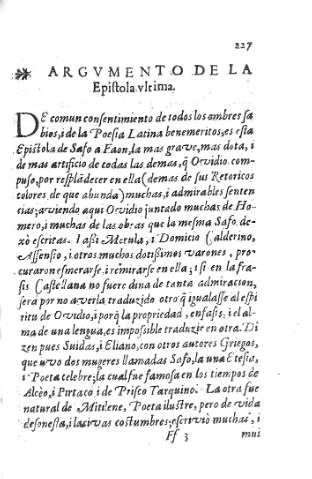 227
❧ ARGVMENTO DE LA
Epistola vltima.
DE comun consentimiento de todos los ombres sa
bios, i de la Poesia Latina benemeritos, es esta
Epistola de Safo a Faon, la mas grave, mas dota, i
de mas artificio de todas las demas, q̃ Ovidio com-
puso, por resplãdecer en ella (demas de sus Retoricos
colores de que abunda) muchas, i admirables senten
cias; aviendo aqui Ovidio juntado muchas de Ho-
mero, i muchas de las obras que la mesma Safo de-
xò escritas. I assi Merula, i Domicio Calderino,
Assensio, i otros muchos dotissimos varones, pro-
curaron esmerarse, i remirarse en ella; i si en la fra-
sis Castellana no fuere dina de tanta admiracion,
serà por no averla traduzido otro q̃ igualasse al espi
ritu de Ovidio, i porq̃ la propriedad, enfasis, i el al-
ma de una lengua, es impossible traduzir en otra. Di
zen pues Suidas, i Eliano, con otros autores Griegos,
que uvo dos mugeres llamadas Safo, la una Eresia,
i Poeta celebre; la cual fue famosa en los tiempos de
Alcèo, i Pirtaco i de Prisco Tarquino. La otra fue
natural de Mitilene, Poeta ilustre, pero de vida
desonesta, i lacivas costumbres; escrivio muchai, i
Ff 3 mui